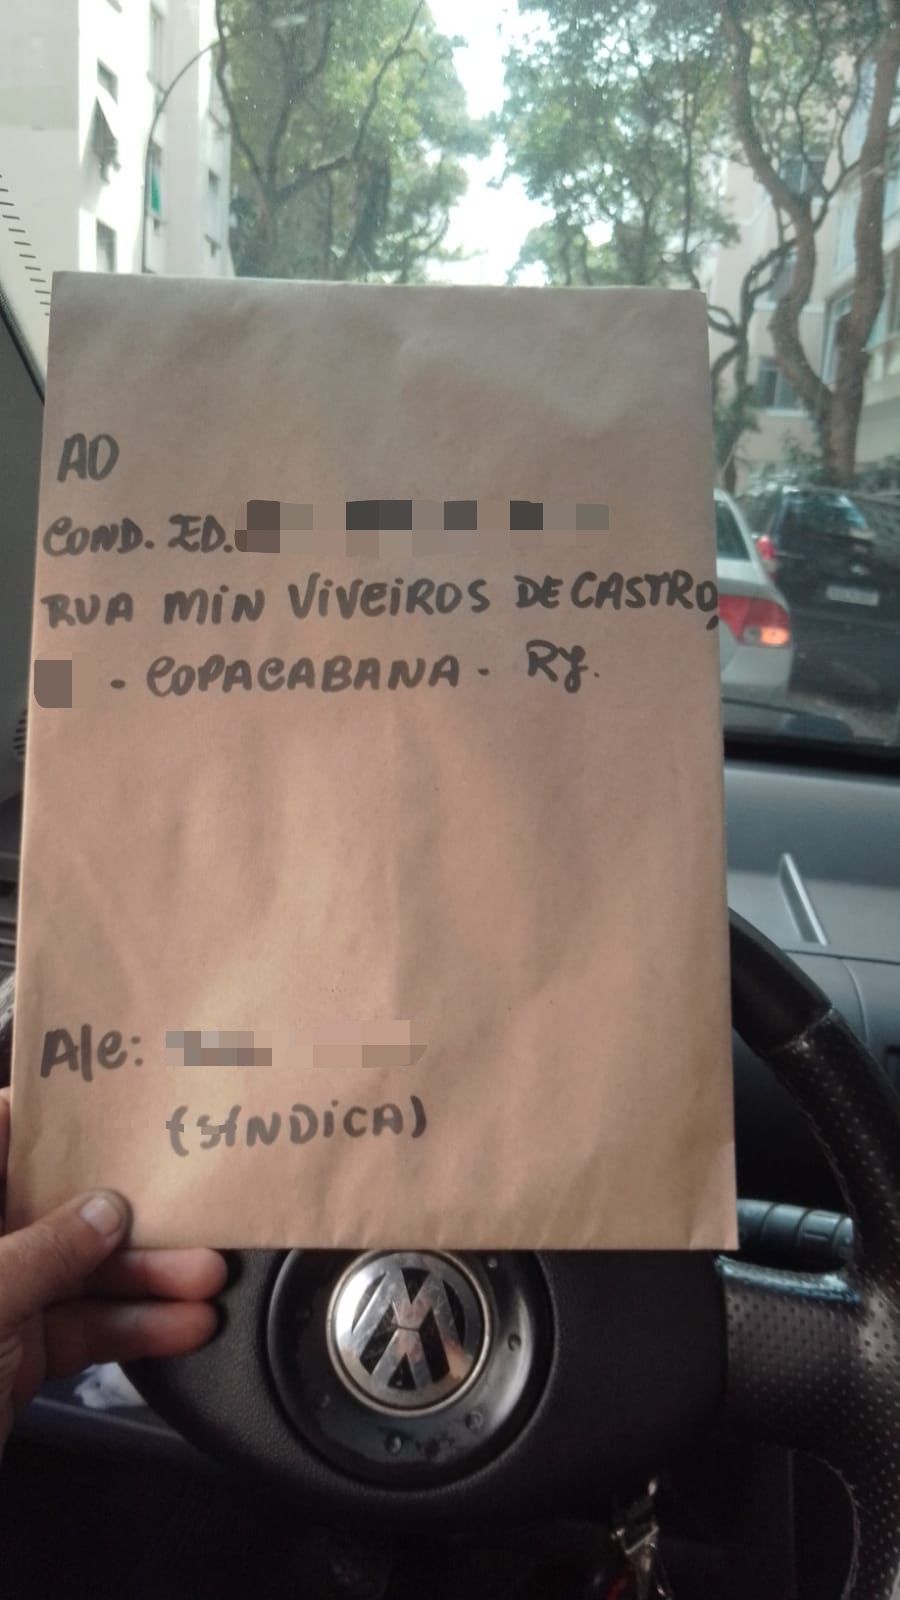 AO
COND. ED.
RUA MIN VIVEIROS DE CASTRO,
- COPACABANA - RJ.
A/c:
(SÍNDICA)